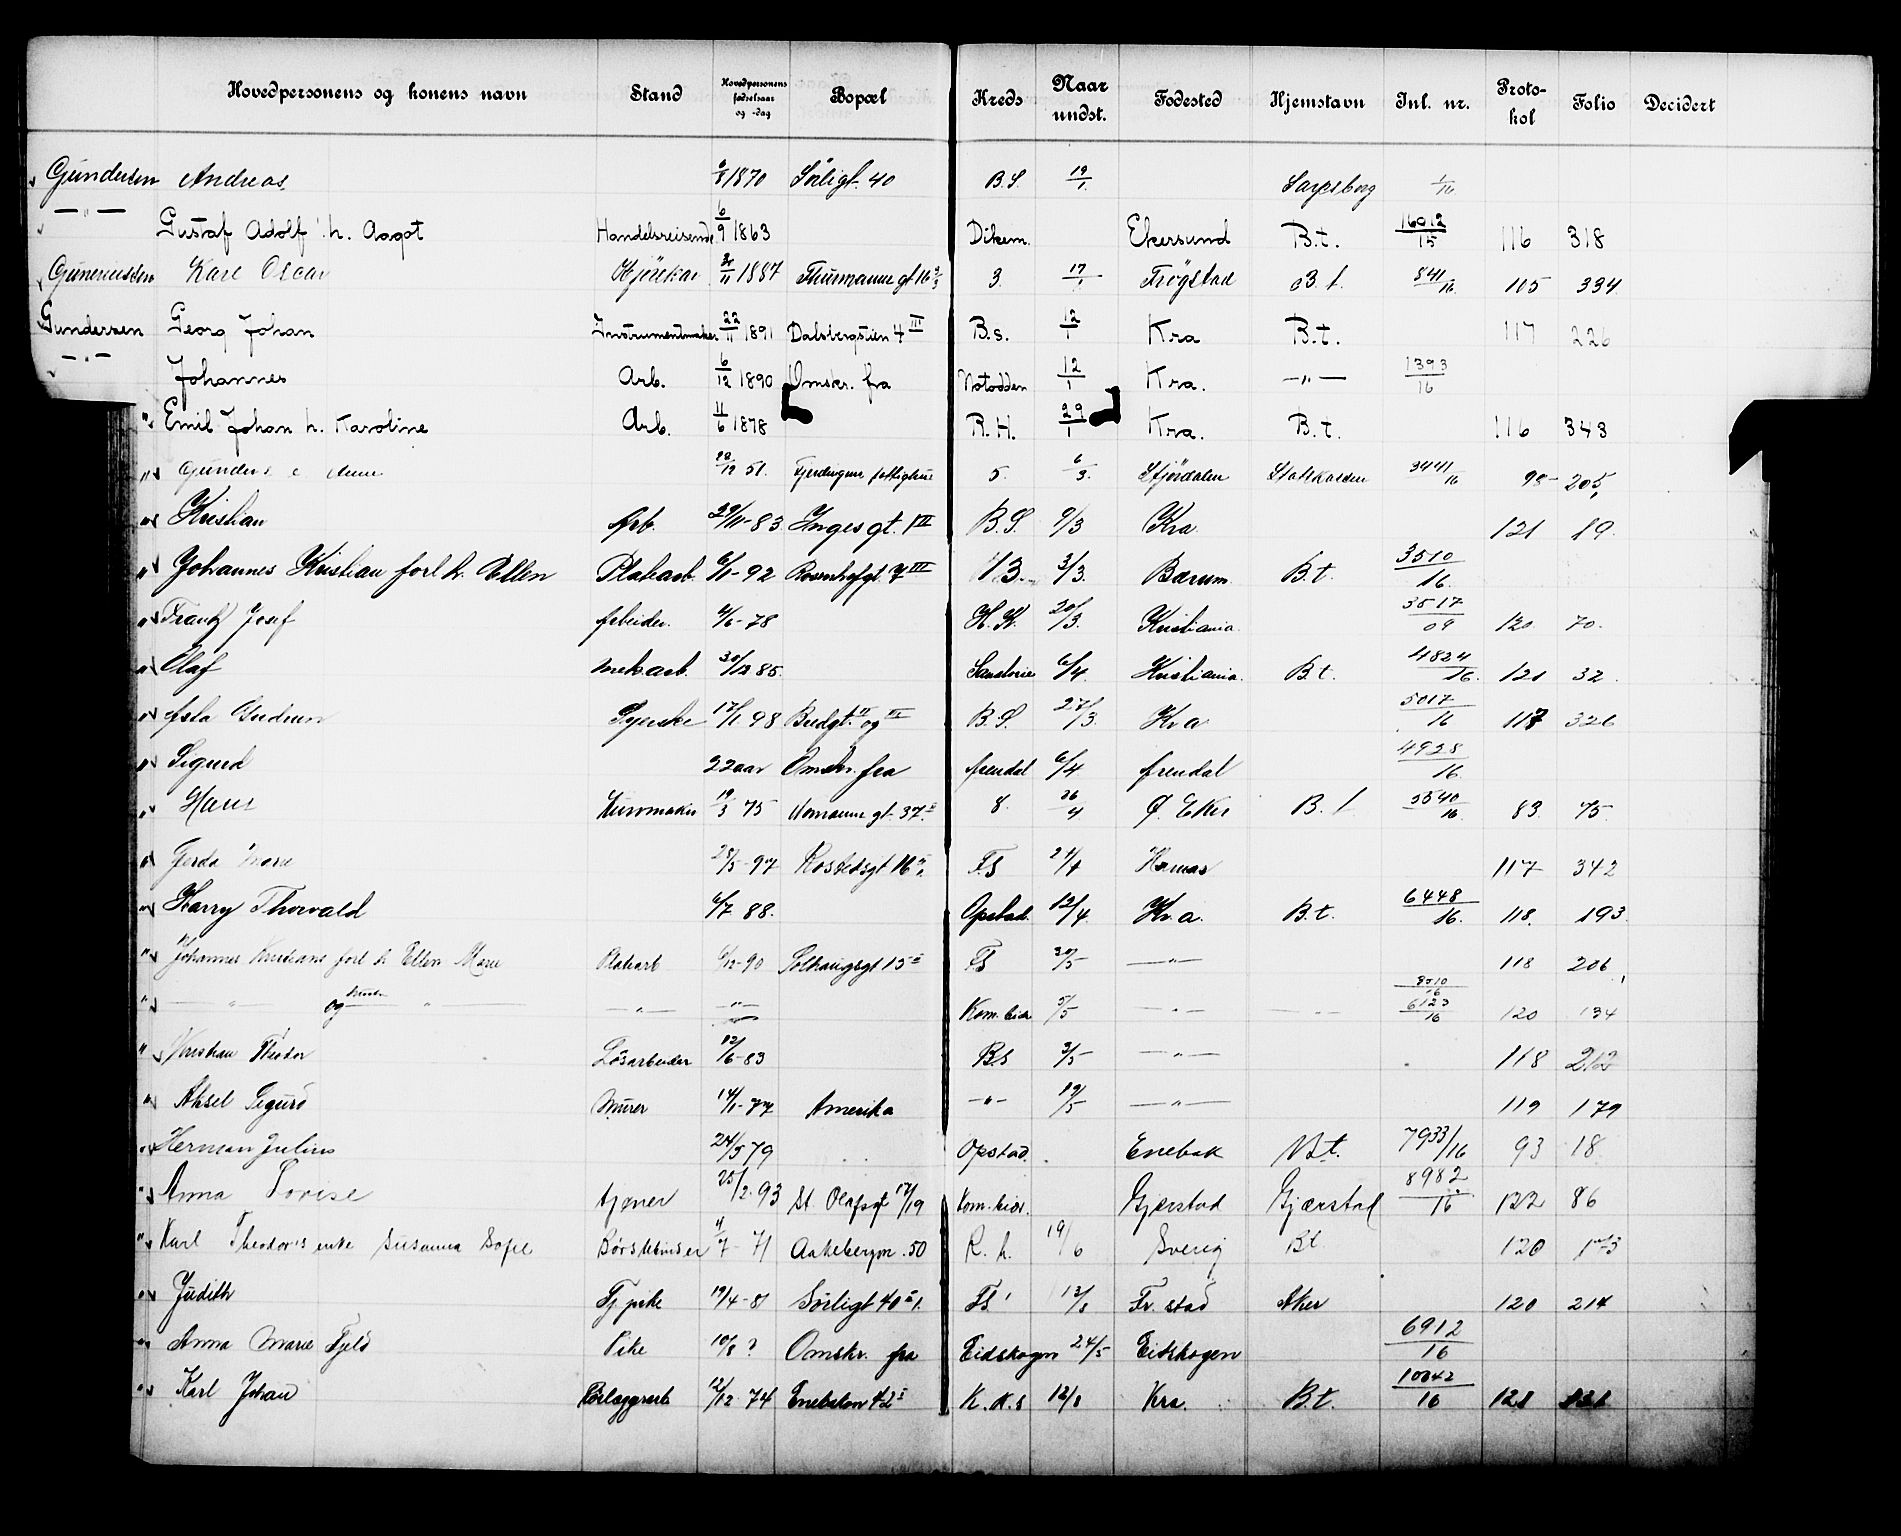 Hovedpersonens og konens navn Stand Hovedpersonens fødselsaar og -dag Bopæl Kreds Naar undst. Fødested Hjemstavn Inl. nr. Protokol Folio Decidert
Gundersen Andreas 1870 Sörligt. 40 B.S. 19/1 Sarpsborg
—"— Gustaf Adolf h. Aagot Handelsreisende 6/9 1863 Dikem. Ekersund B.t. 16012/15 116 318
Karl Oscar 1887 3. 17/1 Frøgstad B.t. 841/16 105 334
Gundersen Georg Johan Instrumentmaker 22/11 1891 Dalsbergstien 4 III B.s. 12/1 Kra B.t. 117 226
—"— Johannes Arb. 6/12 1890 Omskr. fra Notodden 12/1 Kra. —"— 1393/16
" Emil Johan h. Karoline Arb. 11/6 1878 R.H. 29/1 Kra. B.t. 116 343
" 51. 5. 6/3. Stjørdalen 3441/16 98 205
" Kristian Arb. 29/11-83 Inges gt. 1 III B.S. 9/3 Kra. 121 19.
" Johannes Kristian forl. h. Ellen Platearb. 6/11-92 Rosenhofgt. 7 III 3/3. Bærum. B.t. 3510/16.
" Frantz Josef Arbeider. 4/6-78 H.K. 20/3. Kristiania. 3517/09 120. 70.
" Olaf mek.arb. 30/12 85. 6/4. Kristiania. B.t. 4824/16. 121 32.
" Asta Gudrun Syerske 17/1 98 B.S. 27/3. Kr.a 5017/16 117 326
" Sigurd 22 aar Omskr. fra Arendal 6/4 Arendal 4928/16.
" Hans 19/3 75 8. 26/4 Ø. Eker B.t. 5540/16. 83. 75.
" Gerda Marie 28/5-97 F.S 117 342
" Harry Thorvald 6/7 88. Opstad. 12/4. Kr.a. B.t. 6448/16. 118. 193.
" Johannes Kristians forl. h. Ellen Marie Platearb 6/12-90 FS 30/5 —"— 118 206
" —"— og —"— —"— —"— 5/5 —"— —"— 3510/16 6123/16 120 134
" Kristian Theodor Løsarbeider 12/6-83 B.S 3/5 —"— 118 212
" Aksel Sigurd Murer 14/1-77 Amerika —"— 19/5 —"— 119 179
" Herman Julius 24/5 79 Opstad. Enebak B.t. 7933/16 93 18.
" Anna Lovise tjener 25/2. 93 St. Olafsgt 17/19 Gjerstad Gjærstad 8982/16 122 86
" Karl Theodors enke Susanna Sofie Børstebinder 4/7-71 Aakebergvn. 50 R.h. 19/6 Sverig Bt 120 173
" Judith Tj. pike 19/4-81 Sörligt 40 FS Fr.stad Aker 120 214
" Anna Marie Fjeld Pike 10/8 ? Omskr. fra Eidskogen 24/5 Eidskogen 6912/16
" Karl Johan 12/12-74 K.K.S 12/8 Kra. B.t. 10042/16 121 131